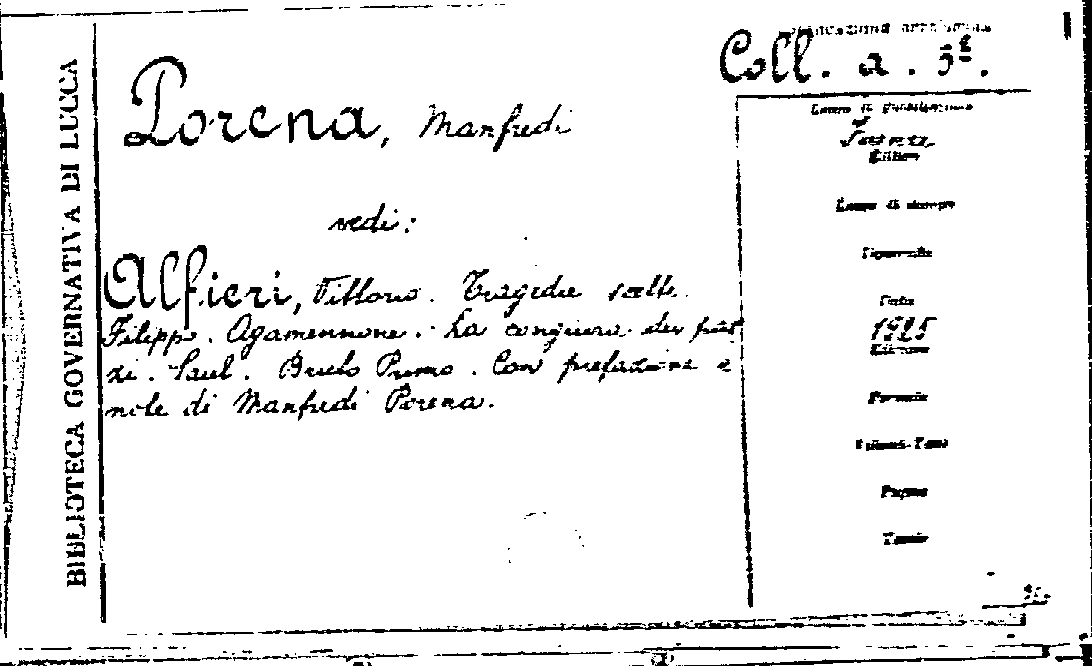 BIBLIOTECA GOVERNATIVA DI LUCCA
Coll. a. 5ª.
Porena, Manfredi
vedi:
Alfieri, Vittorio. Tragedie scelte.
Filippo. Agamennone. La congiura dei paz
zi. Saul. Bruto Primo. Con prefazione e
note di Manfredi Porena.
Luogo di pubblicazione
Editore
Luogo di stampa
Tipografia
Data
1925
Edizione
Formato
Pagine
Tavole